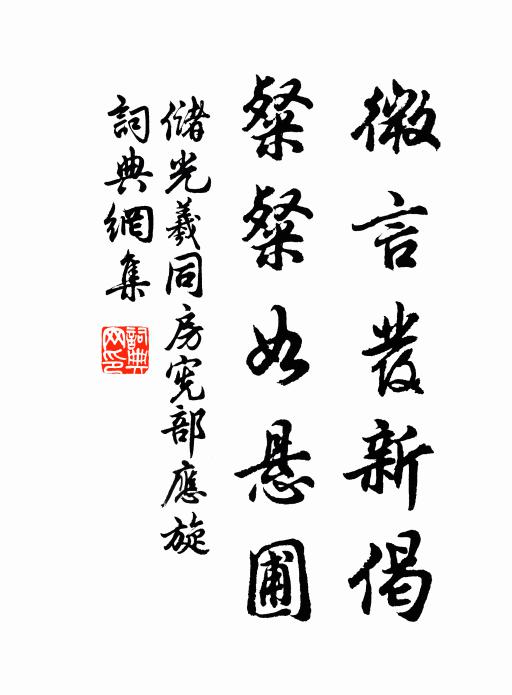 微言發新偈
粲粲如悬圃
儲光羲同房宪部應旋
詞典網集
詞典
网印